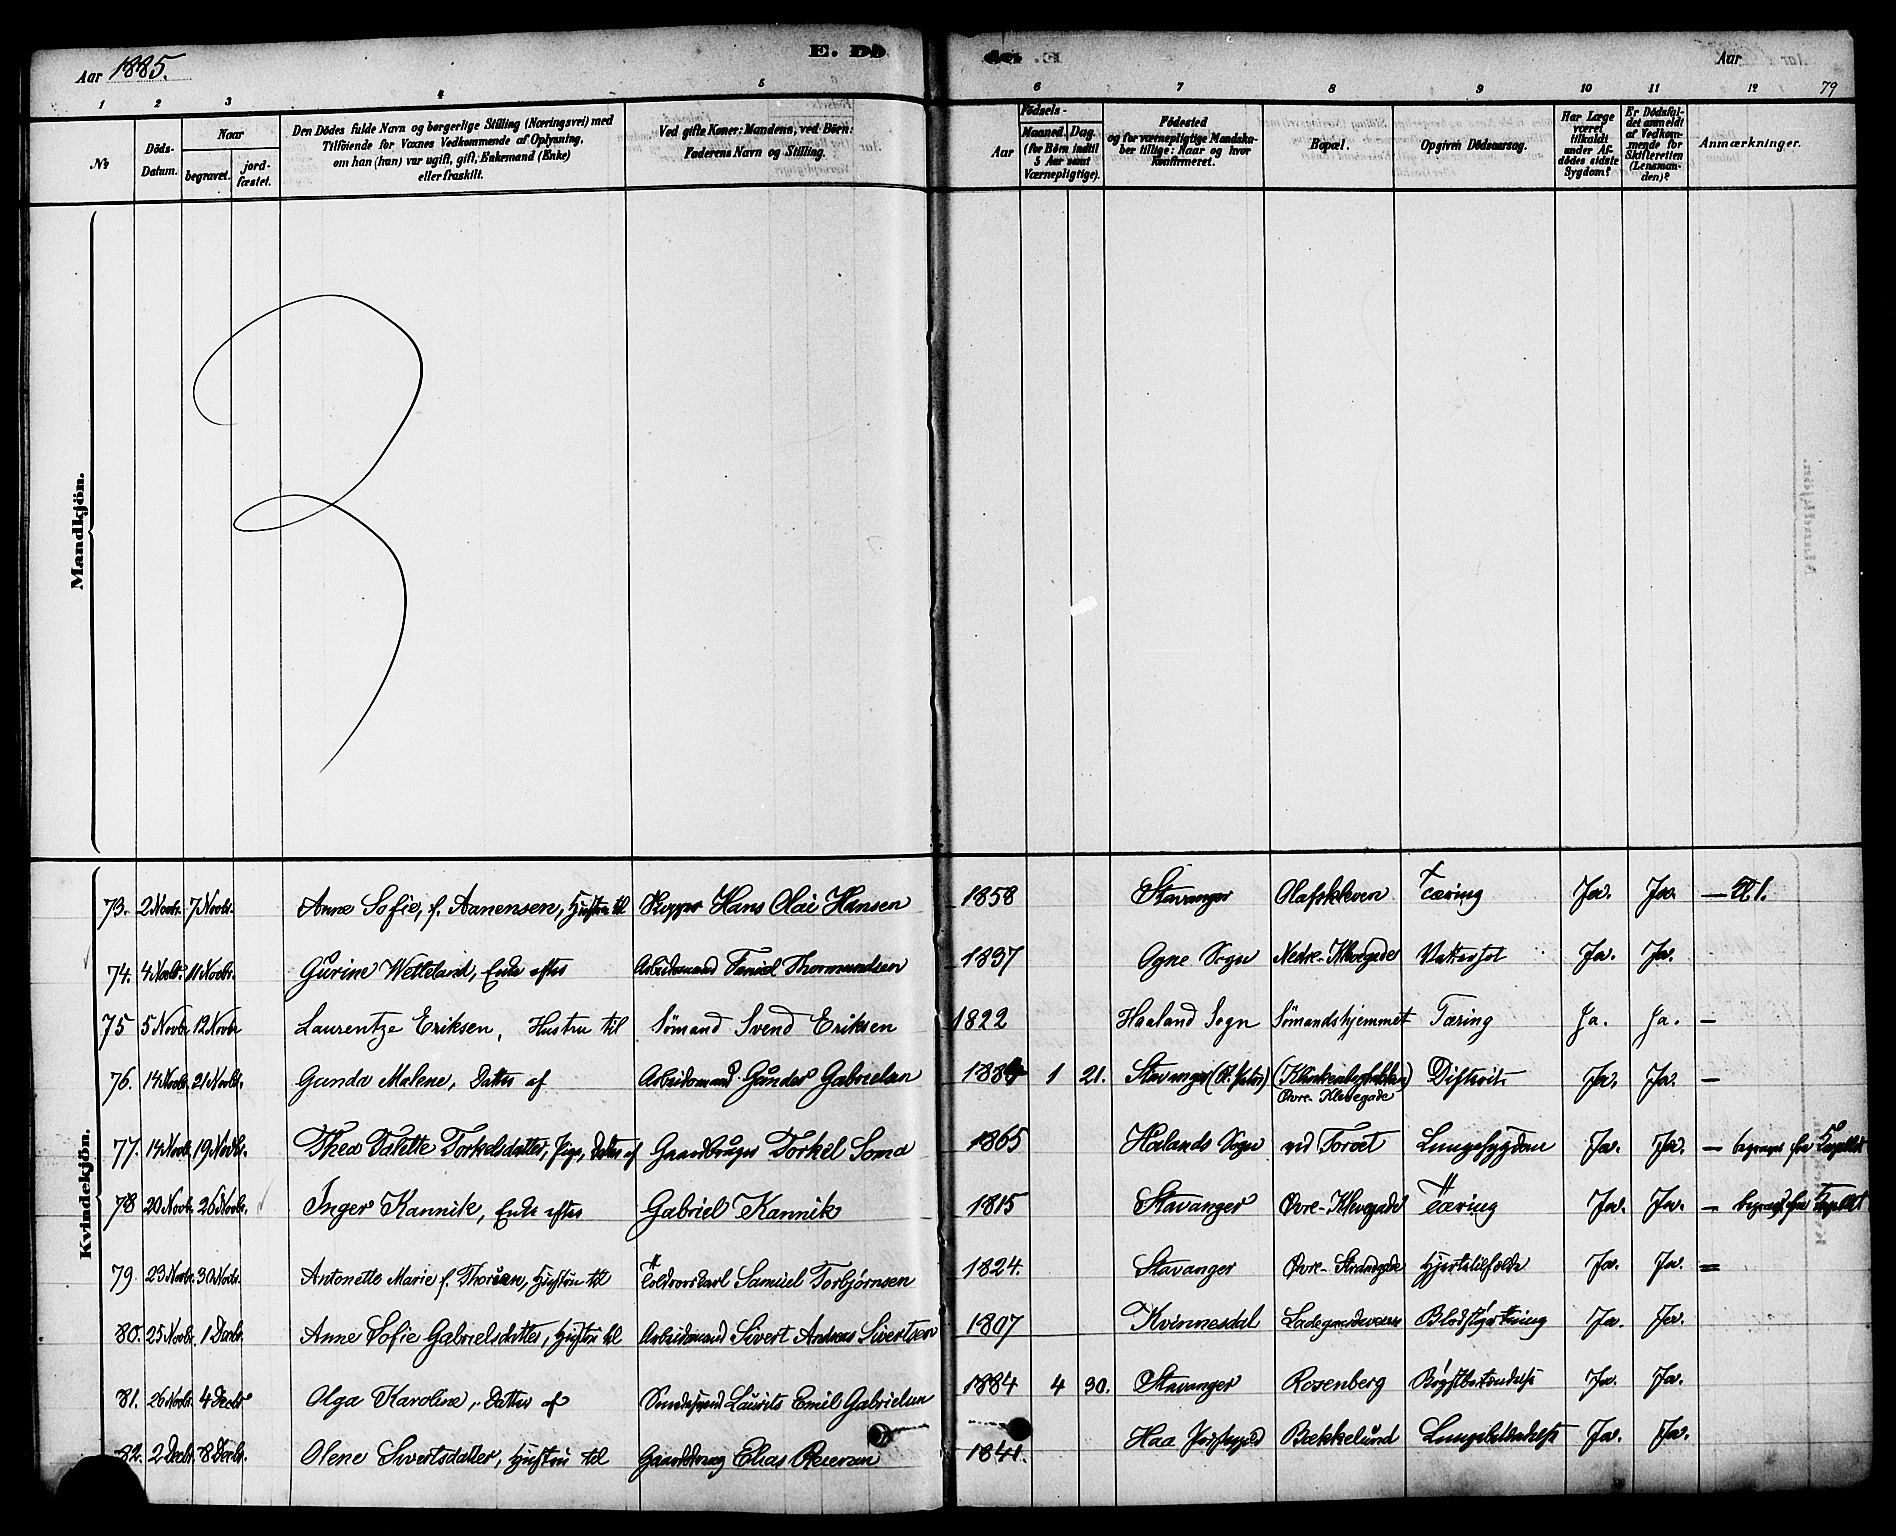 Aar 1885.
E. Dö
Aar
79
1 2 3 4 5 6 7 8 9 10 11 12
No
Döds-Datum.
Naar
begravet.
jordfæstet.
Den Dödes fulde Navn og borgerlige Stilling (Næringsvei) med
Tilföiende for Voxnes Vedkommende af Oplysning,
om han (hun) var ugift, gift, Enkemand (Enke)
eller fraskilt.
Ved gifte Koner: Mandens, ved Börn:
Faderens Navn og Stilling.
Födsels-
Aar
Maaned. Dag.
(for Börn indtil
5 Aar samt
Værnepligtige).
Födested
og for værnepligtige Mandska-
ber tillige: Naar og hvor
konfirmeret.
Bopæl.
Opgiven Dödsaarsag.
Har Læge
været
tilkaldt
under Af-
dödes sidste
Sygdom?
Er Dödsfal-
det anmeldt
af Vedkom-
mende for
Skifteretten
(Lensman-
den)?
Anmærkninger.
Mandkjön.
Kvindekjön.
73. 2 Novbr. 7 Novbr. Anne Sofie, f. Aanensen, Hustru til Skipper Hans Olai Hansen 1858 Stavanger Olafskleven Tæring Ja. Ja. —
74. 4 Novbr. 11 Novbr. Gurine Wetteland, Enke efter Arbeidsmand Daniel Thormundsen 1837 Ogne Sogn Nedre-Klevegade Vattersot Ja. Ja.
75 5 Novbr 12 Novbr Laurentze Eriksen, Hustru til Sömand Svend Eriksen 1822 Haaland Sogn Sömandshjemmet Tæring Ja. Ja. —
76. 14 Novbr. 21 Novbr. Gunda Malene, Datter af Arbeidsmand Gunder Gabrielsen 1884 1 21. Stavanger (St. Petri) Øvre-Klevegade Ja. Ja. —
77. 14 Novbr. 19 Novbr. Thea Talette Torkelsdatter, Pige, Datter af Gaardbruger Torkel Soma 1865 Hølands Sogn ved Torvet Lungesygdom Ja. Ja. — begravet fra Kapellet
78 20 Novbr. 26 Novbr. Inger Kannik, Enke efter Gabriel Kannik 1815 Stavanger Øvre-Klevegade Tæring Ja. Ja. — begravet fra Kapellet
79 23 Novbr. 30 Novbr. Antonette Marie f. Thorsen, Hustru til Toldrorskarl Samuel Torbjørnsen 1824. Stavanger Øvre-Strandgade Hjertetilfælde Ja. Ja. —
80. 25 Novbr. 1 Decbr. Anne Sofie Gabrielsdatter, Hustru til Arbeidsmand Sivert Andreas Sivertsen 1807 Kvinnesdal Ladegaardsveien Blodstyrtning Ja. Ja.
81. 26 Novbr. 4 Decbr Olga Karoline, Datter af Laurits Emil Gabrielsen 1884 4 30. Stavanger Rosenberg Brystbetændelse Ja. Ja.
82. 2 Decbr. 8 Decbr. Olene Sivertsdatter, Hustru til Gaardbrug Elias Reiersen 1841. Haa Præstegjeld Bækkelund Lungebetændelse Ja. Ja.